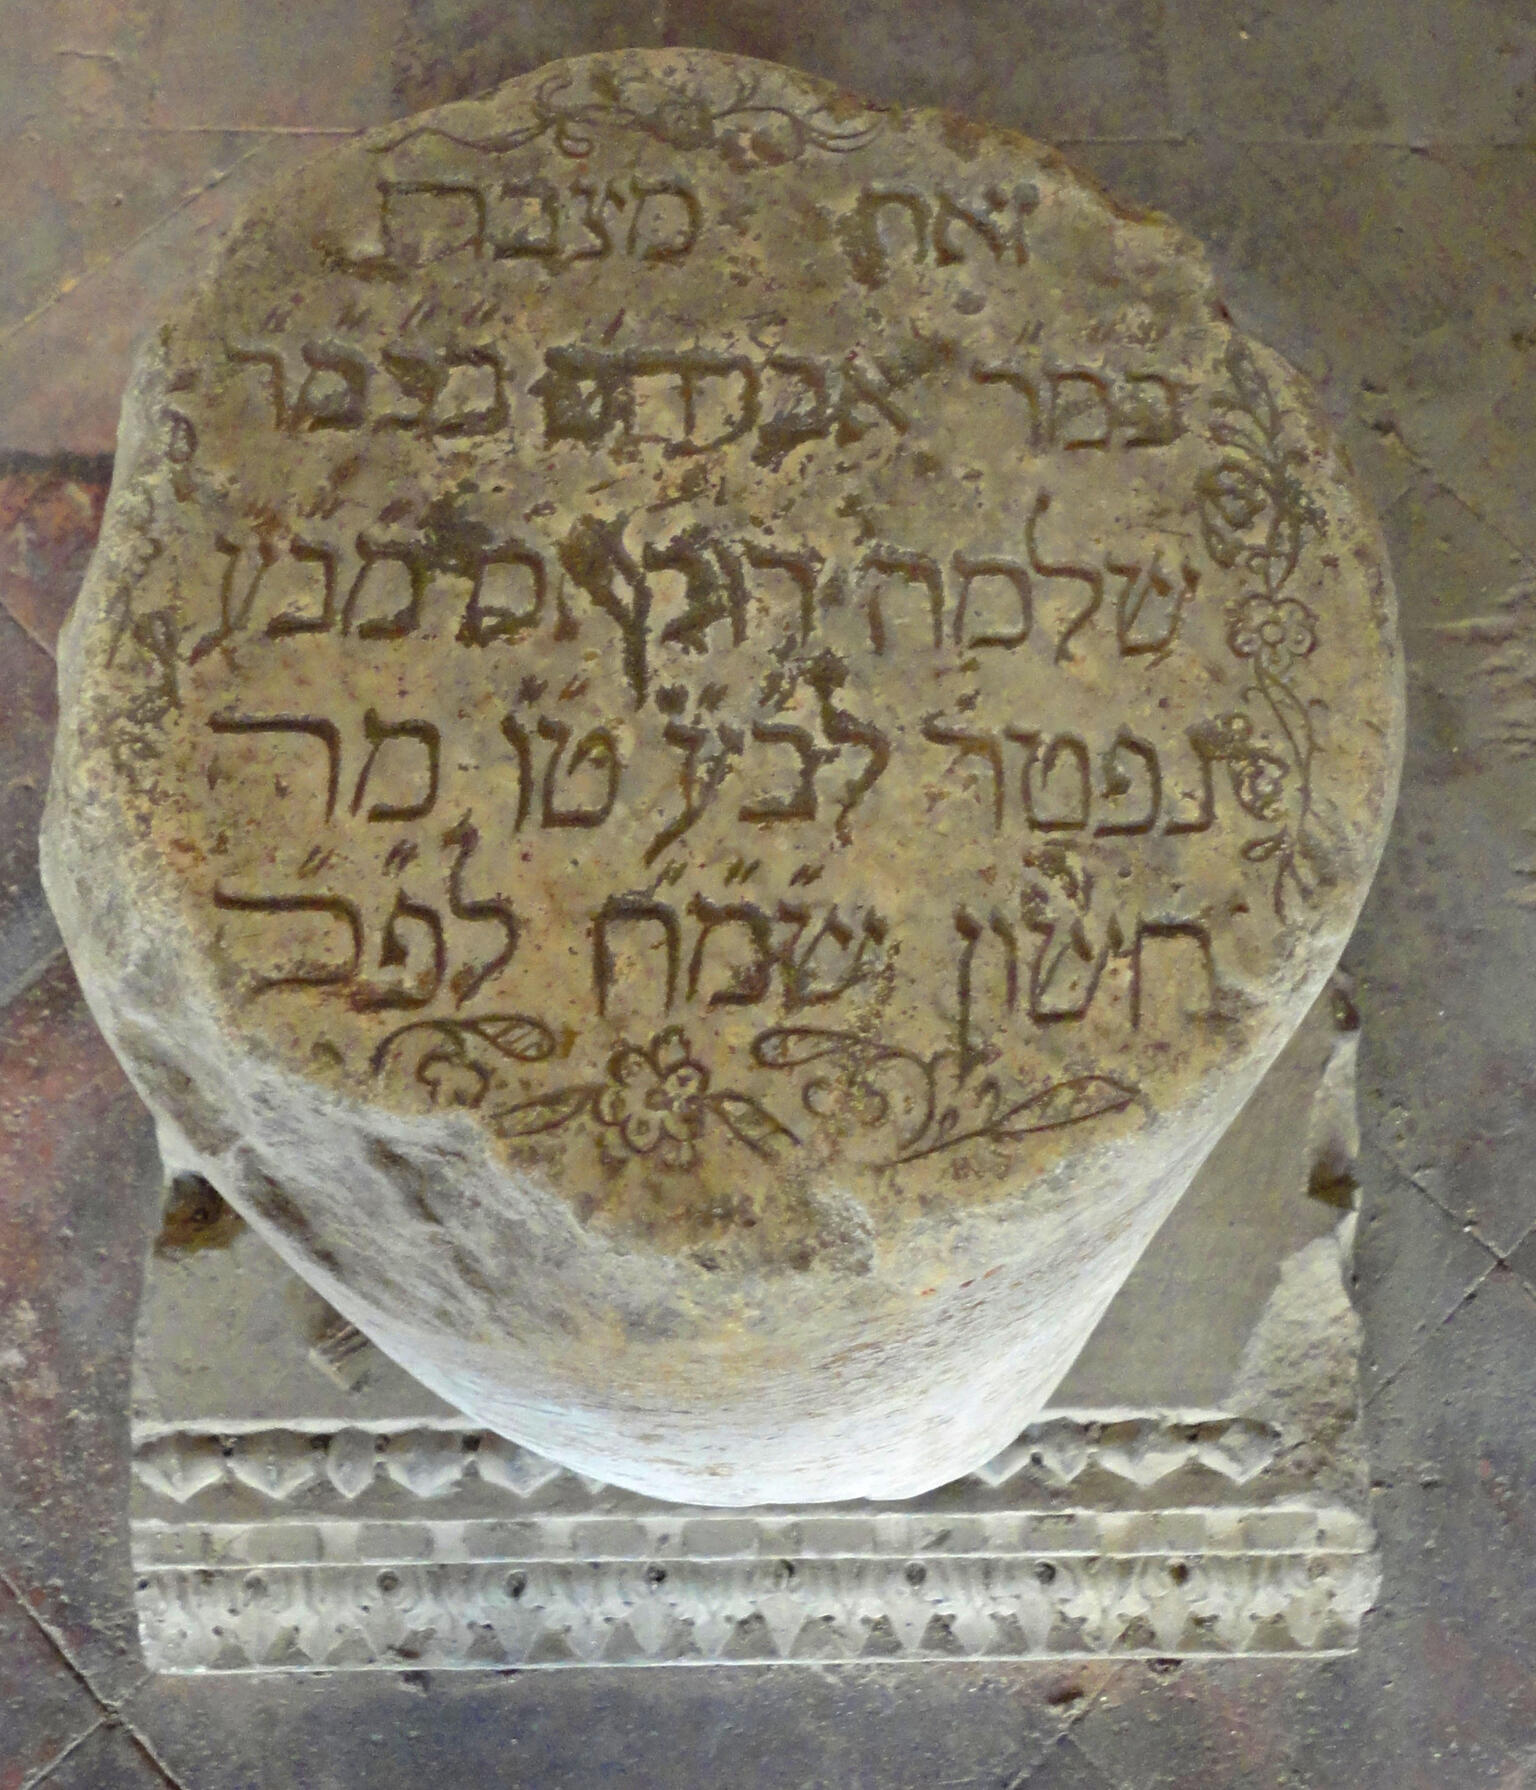 זאת מצבת
כ״מ״ר אברהם בכ״מ״ר
שלמה מ״נ״ע
נפטר לב״ע ט״ו מר
חשון ש״מ״ח לפ״ק